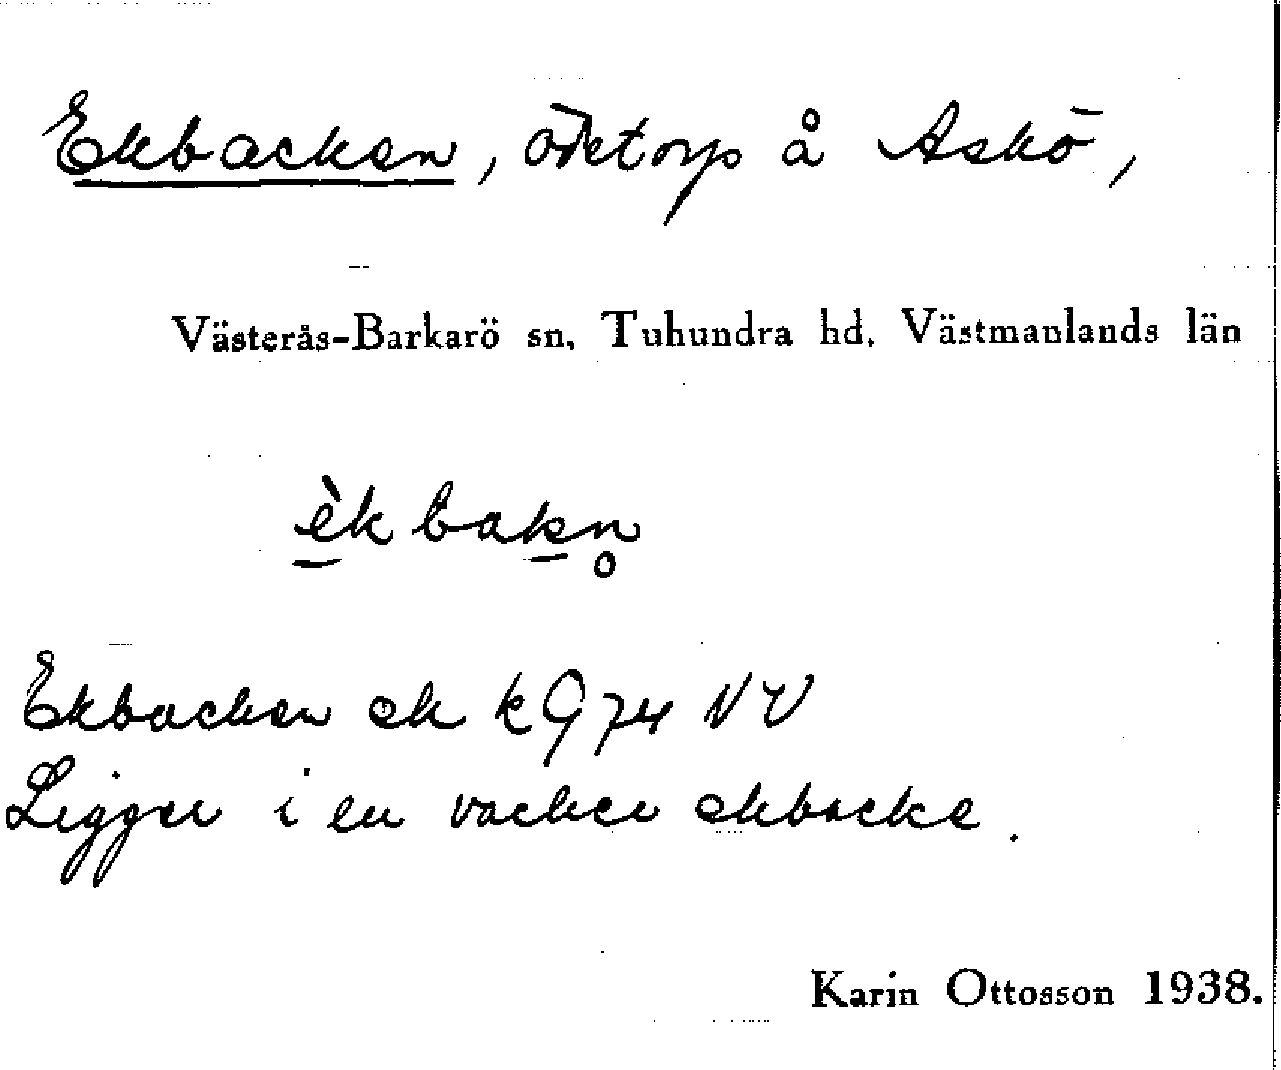 Ekbacken, ödetorp å Askö,
Västerås-Barkarö sn, Tuhundra hd, Västmanlands län
èkbakn̥
Ekbacken ek k 974 NV
Ligger i en vacker ekbacke.
Karin Ottosson 1938.